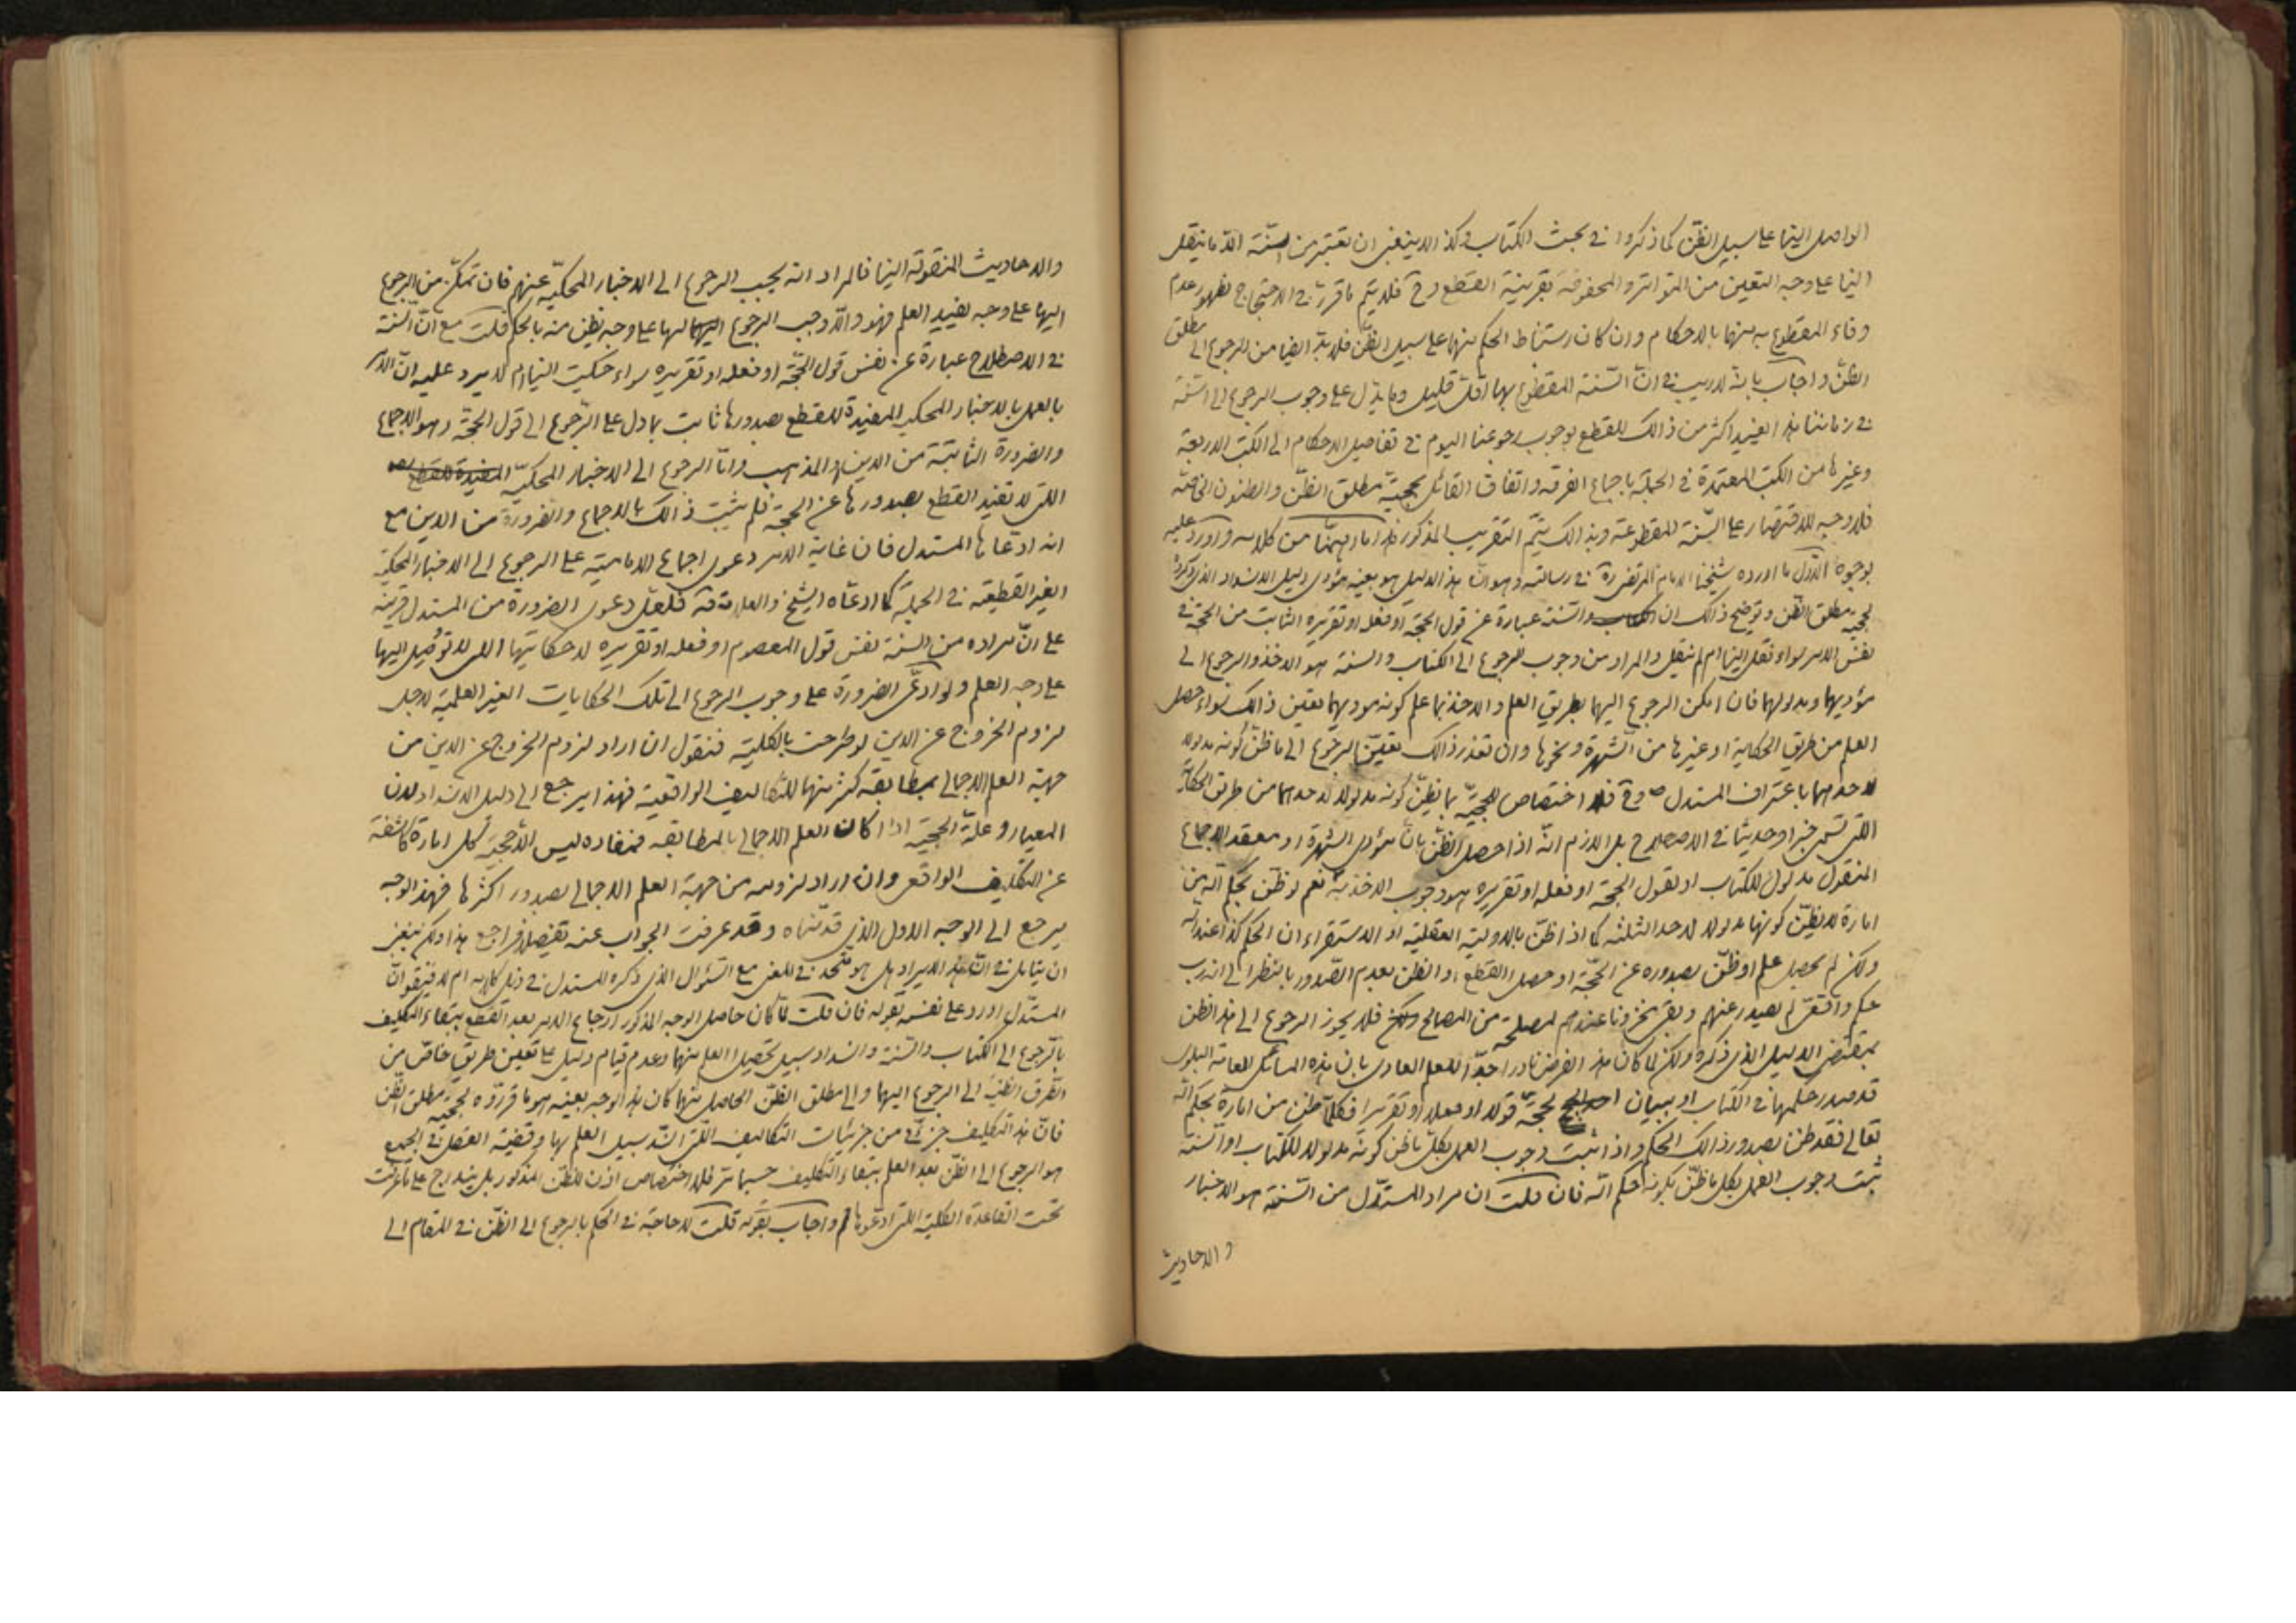 الواصل الینا على سبیل الظن كما ذكروا فى بحث الكتاب وكذا لا ینبغى ان تعتبر من السّنّة الّا ما ینقل
الینا على وجه الیقین من المتواتر والمحفوفة بقرینة القطع وح فلا یتم ما قرر فى الاحتجاج لظهور عدم
وفاء المقطوع به منها بالاحكام وان كان استنباط الحكم منها على سبیل الظنّ فلا بدّ ایضا من الرجوع الى مطلق
الظنّ واجاب بانه لا ریب فى انّ السّنة المقطوع بها اقلّ قلیل وما یدلّ على وجوب الرجوع الى السّنّة
فى زماننا هذا یفید اكثر من ذالك للقطع بوجوب رجوعنا الیوم فى تفاصیل الاحكام الى الكتب الاربعة
وغیرها من الكتب المعتمدة فى الجملة باجماع الفرقة واتفاق القائل بحجیة مطلق الظنّ والظنون الخاصّة
فلا وجه للاقتصار على السّنة المقطوعة وبذالك یتمّ التقریب المذكور هذا ما اهمّنا من كلامه واورد علیه
بوجوه الاوّل ما اورده شیخنا الامام المرتضى ره فى رسالته وهو انّ هذا الدلیل هو بعینه مؤدى دلیل الانسداد الذى ذكروه
لحجیة مطلق الظن وتوضیح ذالك ان الكتاب والسّنة عبارة عن قول الحجّة او فعله او تقریره الثابت من الحجّة فى
نفس الامر سواء نقل الینا ام لم ینقل والمراد من وجوب الرجوع الى الكتاب والسنة هو الاخذ والرجوع الى
مؤدیهما ومدلولهما فان امكن الرجوع الیهما بطریق العلم والاخذ بما علم كونه مودیهما تعین ذالك سواء حصل
العلم من طریق الحكایة او غیرها من الشهرة ونحوها وان تعذر ذالك تعیّن الرجوع الى ما ظنّ كونه مدلولا
لاحدهما باعتراف المستدل ص وح فلا اختصاص للحجیّة بما یظنّ كونه مدلولا لاحدهما من طریق الحكایة
التى تسمى خبرا وحدیثا فى الاصطلاح بل اللازم انّه اذا حصل الظنّ بانّ مؤدى الشهرة او معقد الاجماع
المنقول مدلول للكتاب او لقول الحجّة او فعله او تقریره هو وجوب الاخذ به نعم لو ظنّ بحكم الله من
امارة لا یظنّ كونها مدلولا لاحد الثلثة كما اذا ظنّ بالاولویة العقلیة او الاستقراء ان الحكم كذا عند الله
ولكن لم یحصل علم او ظنّ بصدوره عن الحجّة او حصل القطع او الظن بعدم الصّدور بالنظر الى انه ربّ
حكم واقعىّ لم یصدر عنهم وبقى مخزونا عندهم لمصلحة من المصالح فلا یجوز الرجوع الى هذا الظن
بمقتضى الدلیل الذى ذكره ولكن لما كان هذا الفرض نادرا جدّا للعلم العادى بان هذه المسائل العامة البلوى
قد صدر حكمها فى الكتاب او ببیان الحجّة قولا او فعلا او تقریرا فكلّما ظن من امارة بحكم الله
تعالى فقد ظن بصدور ذالك الحكم واذا ثبت وجوب العمل بكلّ ما ظن كونه مدلولا للكتاب او السّنة
ثبت وجوب العمل بكل ما ظنّ بكونه حكم الله فان قلت ان مراد المستدّل من السّنّة هو الاخبار
والاحادیث
والاحادیث المنقولة الینا فالمراد انه یجب الرجوع الى الاخبار المحكیّة عنهم فان تمكّن من الرجوع
الیها على وجه یفید العلم فهو والّا وجب الرجوع الیها على وجه یظن منه بالحكم قلت مع انّ السّنّة
فى الاصطلاح عبارة عن نفس قول الحجّة او فعله او تقریره سواء حكیت الینا ام لا یرد علیه انّ الامر
بالعمل بالاخبار المحكیة المفیدة للقطع بصدورها ثابت بما دل على الرّجوع الى قول الحجّة وهو الاجماع
والضرورة الثابتة من الدین والمذهب وامّا الرجوع الى الاخبار المحكیّة المفیدة للقطع
التى لا تفید القطع بصدورها عن الحجّة فلم یثبت ذالك بالاجماع والضرورة من الدین مع
انه ادّعاها المستدل فان غایة الامر دعوى اجماع الامامیّة على الرجوع الى الاخبار المحكیّة
الغیر القطعیّة فى الجملة كما ادعاه الشیخ والعلامة فلعلّ دعوى الضرورة من المستدل قرینة
على انّ مراده من السنة نفس قول المعصوم او فعله او تقریره لا حكایتها التى لا توصل الیها
على وجه العلم ولو ادعّى الضرورة على وجوب الرجوع الى تلك الحكایات الغیر العلمیة لاجل
لزوم الخروج عن الدین لو طرحت بالكلیّة فنقول ان اراد لزوم الخروج عن الدین من
جهة العلم الاجمالى بمطابقة كثیر منها للتكالیف الواقعیة فهذا یرجع الى دلیل الانسداد لان
المعیار وعلّة الحجیّة اذا كان العلم الاجمالى بالمطابقة فمفاده لیس الّا حجیّة كل امارة كاشفة
عن التكلیف الواقعى وان اراد لزومه من جهة العلم الاجمالى بصدور اكثرها فهذ الوجه
یرجع الى الوجه الاول الذى قدّمناه وقد عرفت الجواب عنه تفصیلا فراجع هذا ولكن ینبغى
ان یتامل فى انّ هذا الایراد هل هو متّحد فى المعنى مع السّئوال الذى ذكره المستدل فى ذیل كلامه ام لا فنقول انّ
المستدّل اورد على نفسه بقوله فان قلت لمّا كان حاصل الوجه المذكور ارجاع الامر بعد القطع ببقاء التكلیف
بالرّجوع الى الكتاب والسّنّة وانسداد سبیل تحصیل العلم منهما وعدم قیام دلیل على تعیین طریق خاصّ من
الطّرق الظنّیة الى الرجوع الیهما والى مطلق الظنّ الحاصل منهما كان هذا الوجه بعینه هو ما قرّروه لحجیّة مطلق الظّن
فانّ هذا التكلیف جزئى من جزئیات التكالیف التى انسّد سبیل العلم بها وقضیّة العقل فى الجمیع
هو الرجوع الى الظنّ بعد العلم ببقاء التكلیف حسبما مرّ فلا اختصاص اذن للظنّ المذكور بل یندرج على ما عرفت
تحت القاعدة الكلیّة التى ادّعوها واجاب بقوله قلت لا حاجة فى الحكم بالرجوع الى الظنّ فى المقام الى